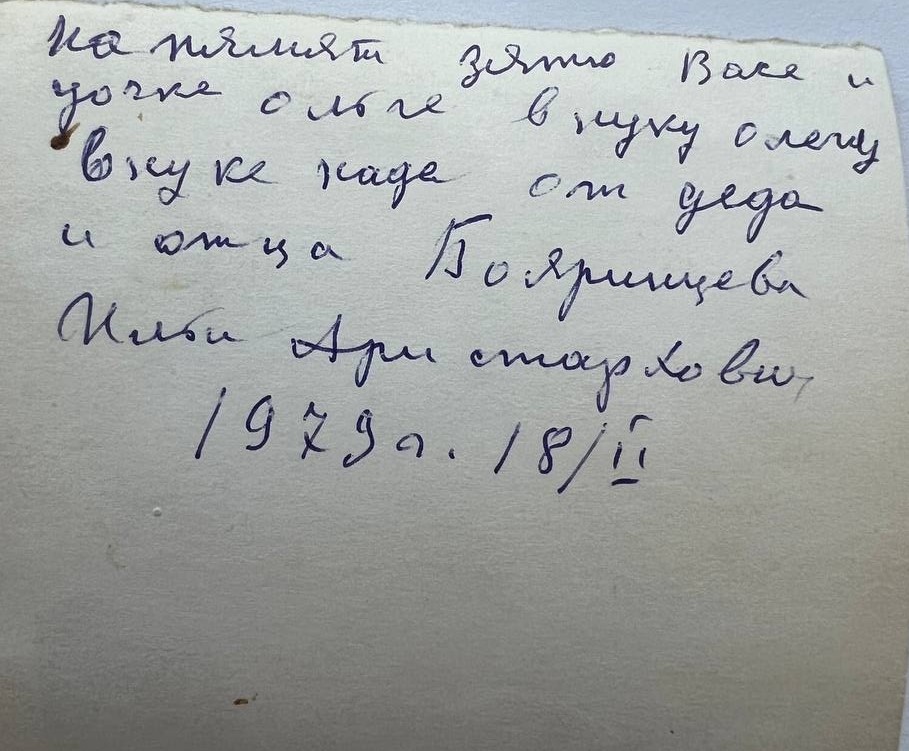 на пямят зятю Васе и
дочке ольге внуку олегу
внуке наде от деда
и отца Бояринцева
Ильи Аристархович
1979 г. 18/II